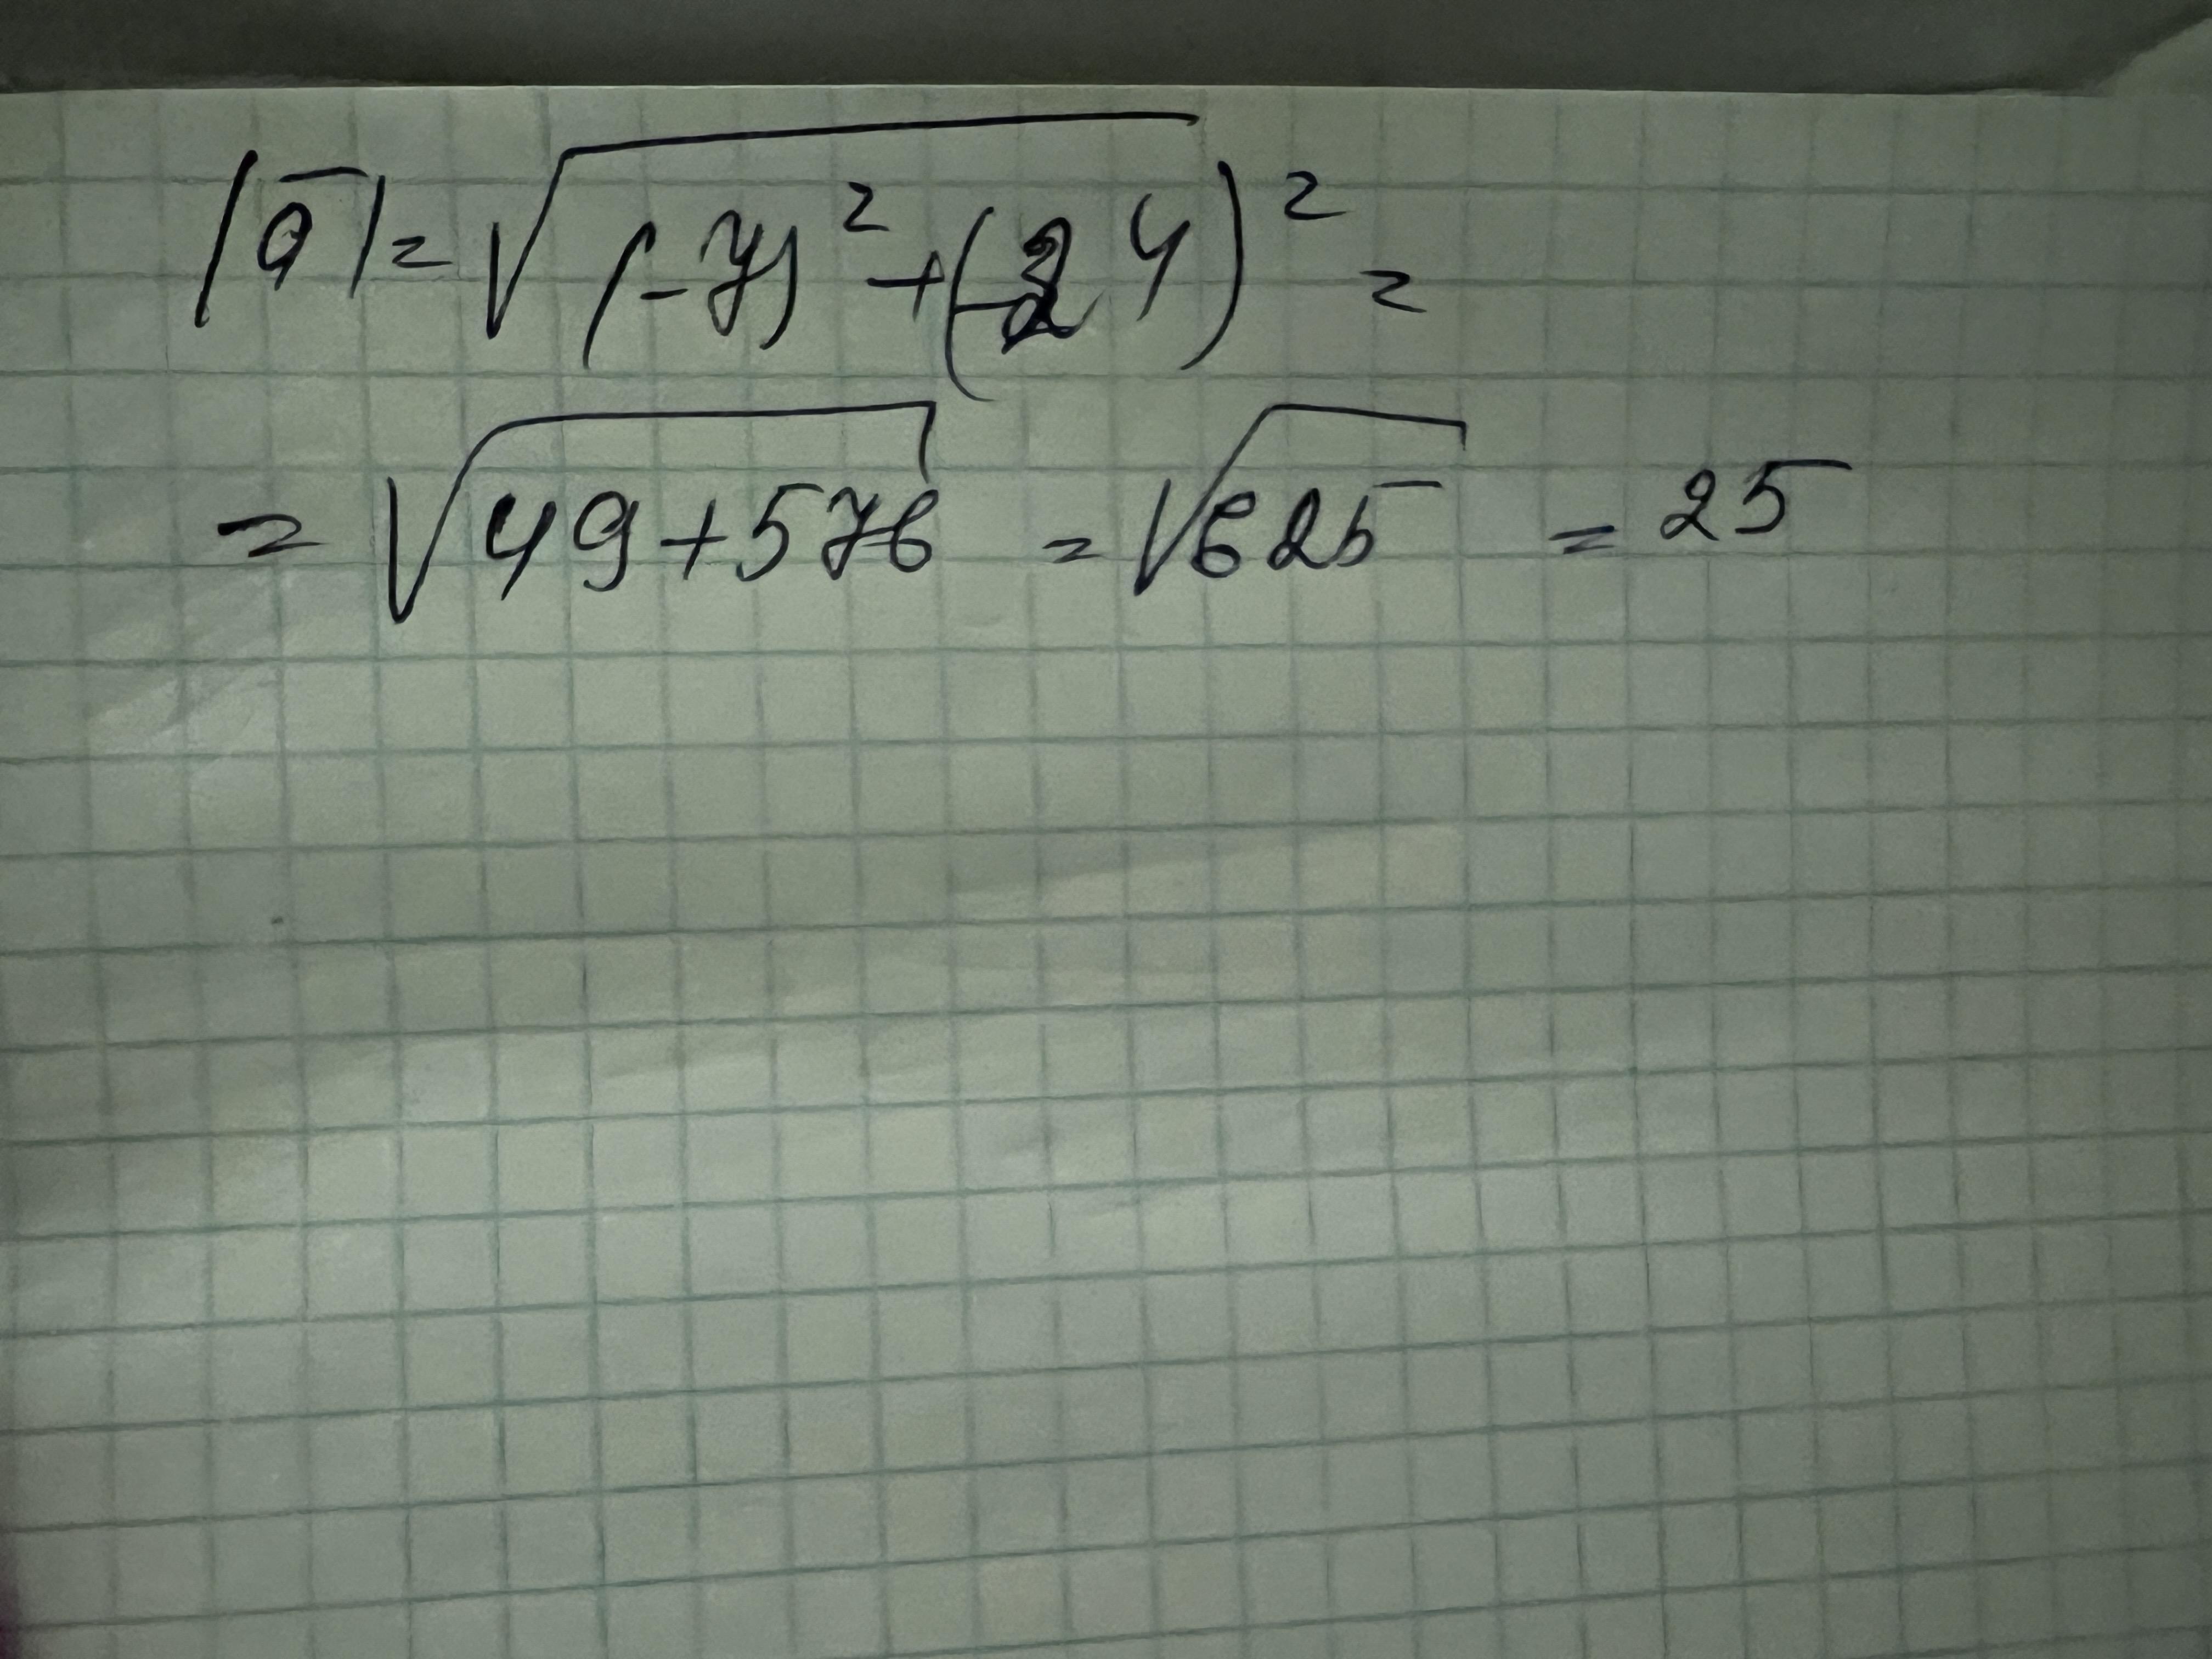 |a̅| = √(-7)² + (-24)² =
= √49+576 = √625 = 25